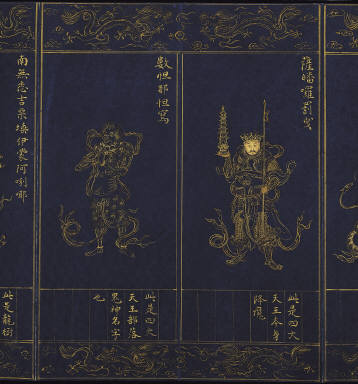 薩皤囉罰曳
此是四大
天王本身
降魔
數怛那怛寫
此是四大
天王部落
鬼神名字
也
南無悉吉栗埵伊蒙阿唎耶
此是龍樹